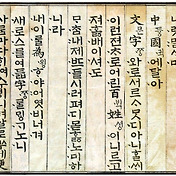 나랏말ᄊᆞ미
中듀ᇰ國귁에달아
文문字ᄍᆞᆼ와로서르ᄉᆞᄆᆞᆺ디아니ᄒᆞᆯᄊᆡ
이런젼ᄎᆞ로어린百ᄇᆡᆨ姓셔ᇰ이니르고
져호ᇙ배이셔도
ᄆᆞᄎᆞᆷ내제ᄠᅳ들시러펴디몯ᄒᆞᇙ노미하
니라
내이ᄅᆞᆯ為윙ᄒᆞ야어엿비너겨
새로스믈여듧字ᄍᆞᆼᄅᆞᆯᄆᆡᇰᄀᆞ노니
사ᄅᆞᆷ마다ᄒᆡᅇᅧ수ᄫᅵ니겨날로ᄡᅮ메